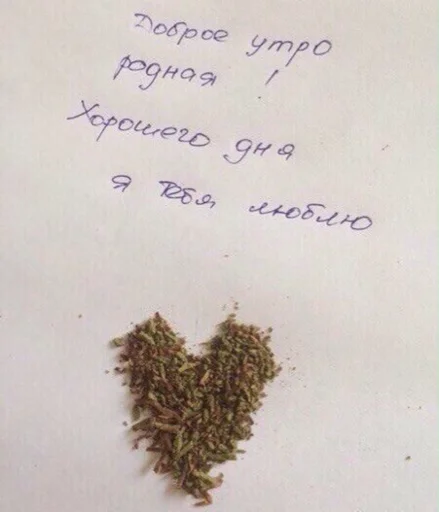 Доброе утро
родная !
Хорошего дня
я тебя люблю